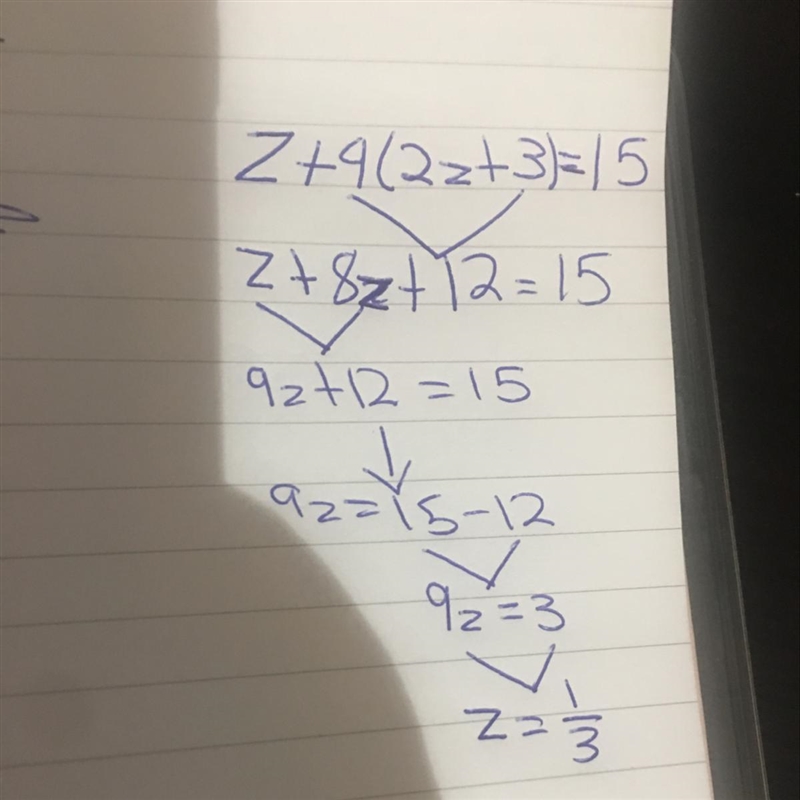 z+4(2z+3)=15
z+8z+12=15
9z+12=15
9z=15-12
9z=3
z=1/3